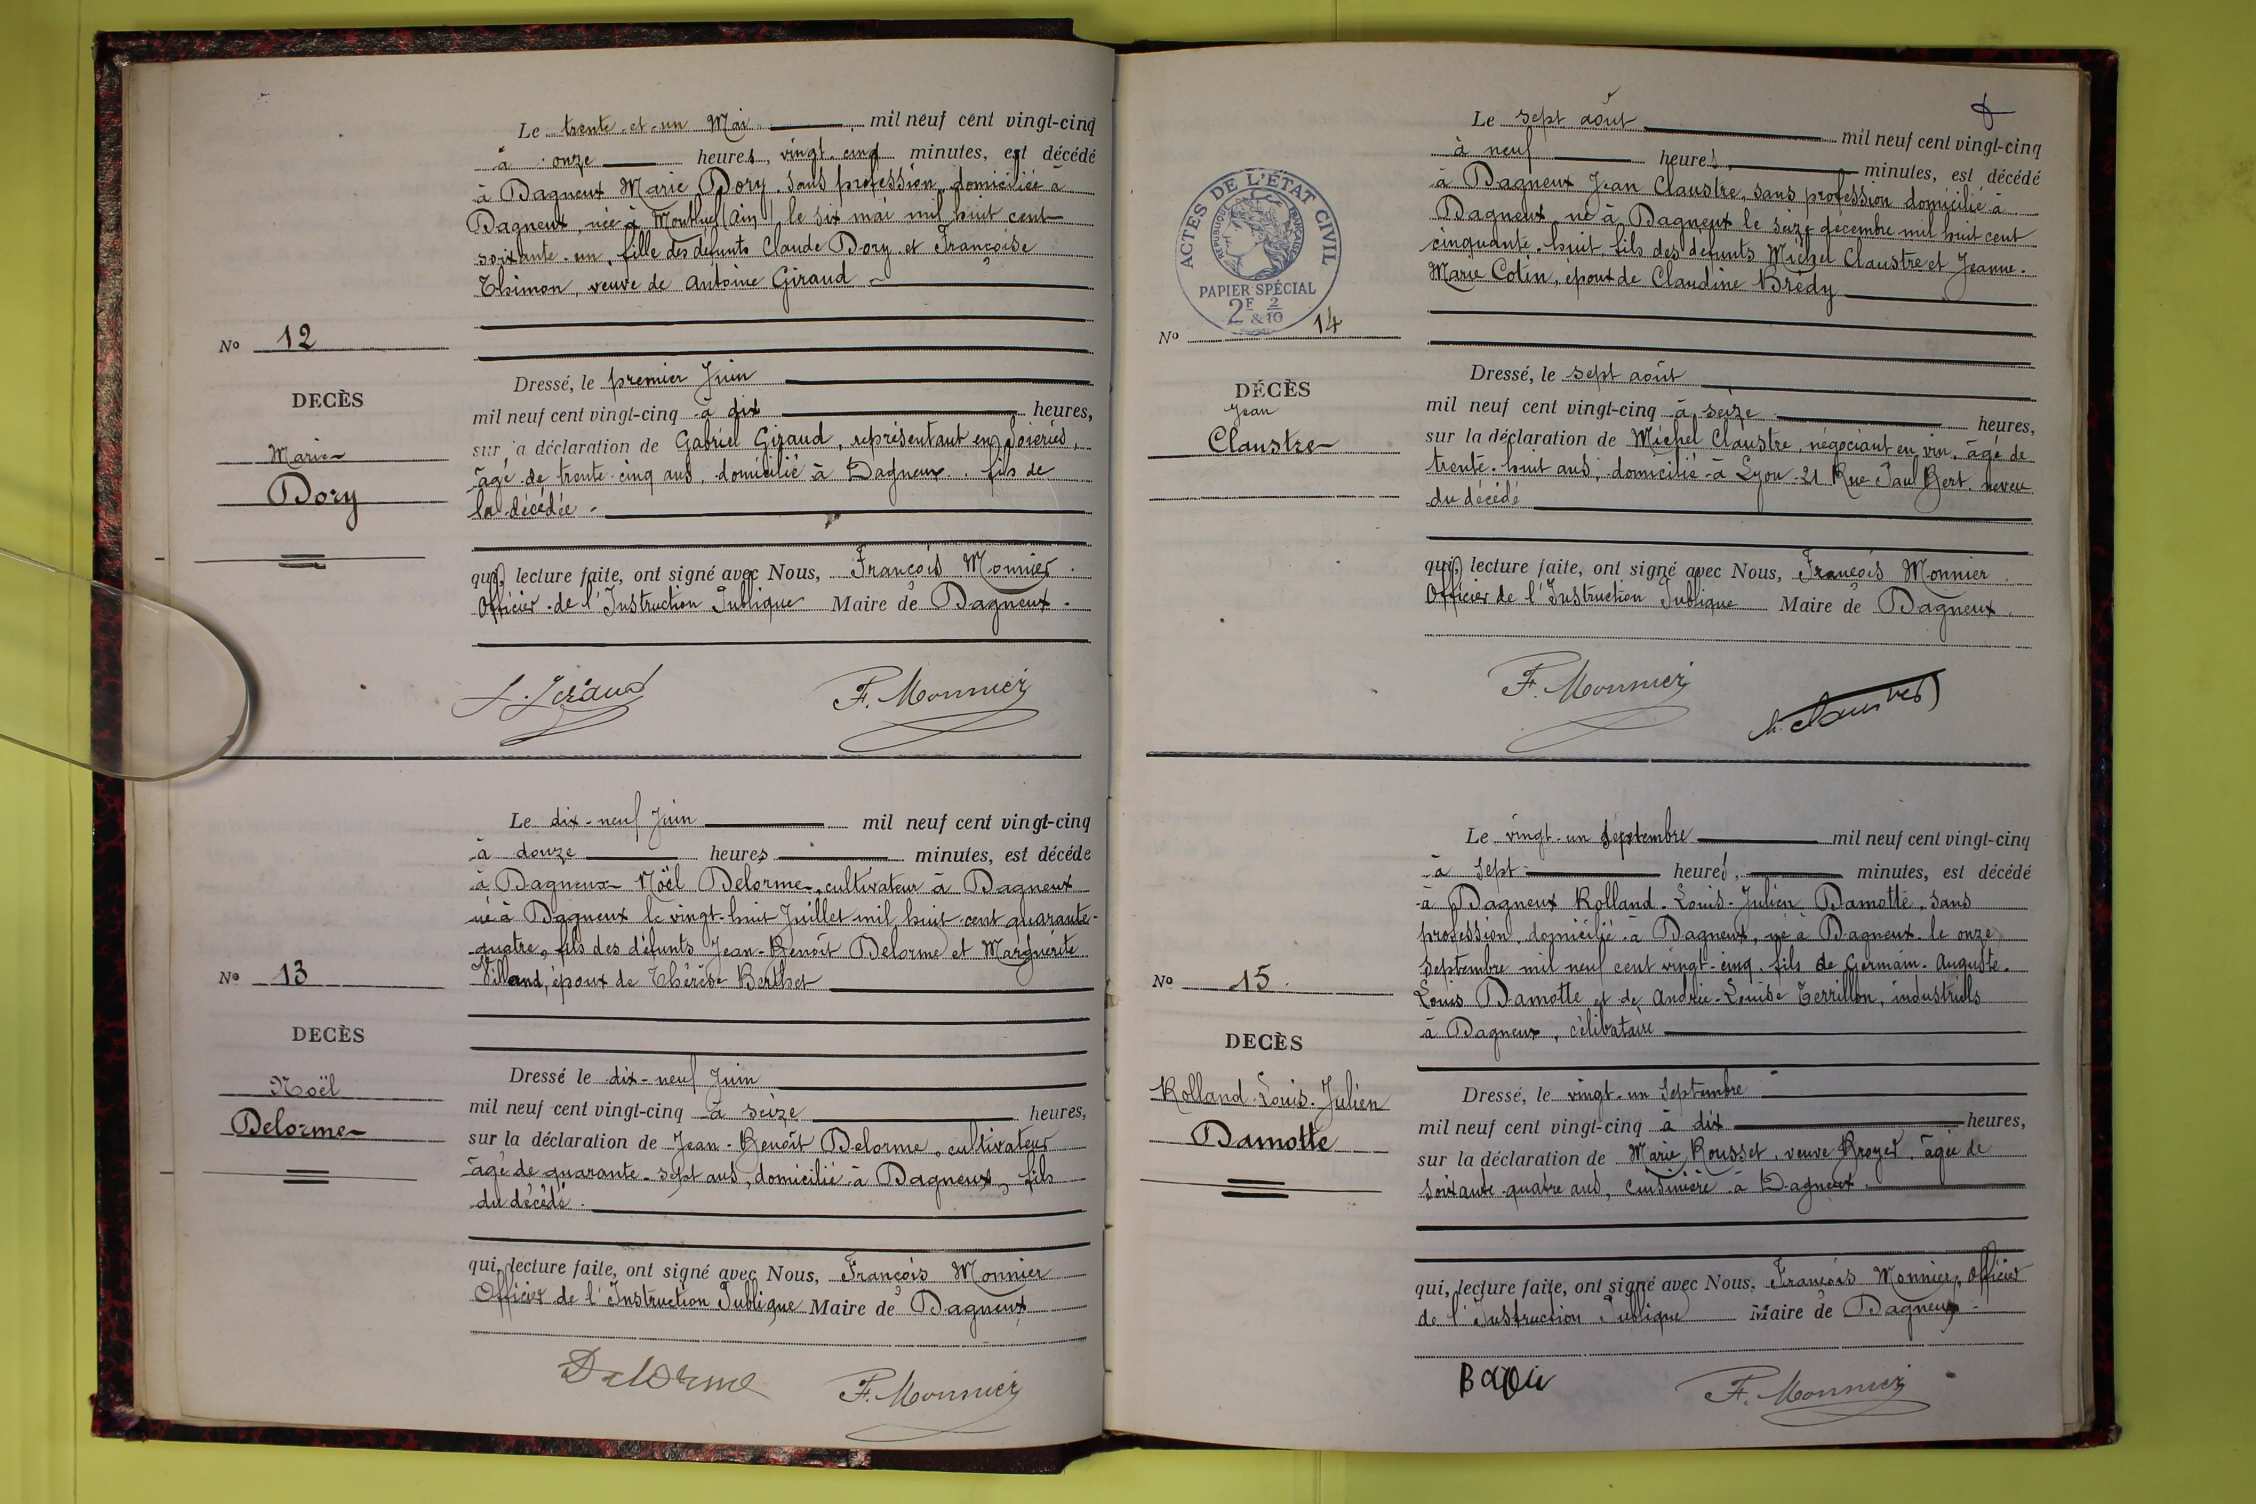 Le trente-et-un Mai mil neuf cent vingt-cinq
à onze heures, vingt-cinq minutes, est décédé
à Dagneux Marie Dory, sans profession, domiciliée à
Dagneux, née à Montluel (Ain), le six mai mil huit cent
soixante-un, fille des défunts Claude Dory et Françoise
Thimon, veuve de Antoine Giraud
No 12
DECÈS
Marie
Dory
Dressé, le premier Juin
mil neuf cent vingt-cinq à dix heures,
sur la déclaration de Gabriel Giraud, représentant en soieries,
âgé de trente-cinq ans, domicilié à Dagneux, fils de
la décédée.
qui, lecture faite, ont signé avec Nous, François Monnier
Officier de l'Instruction Publique Maire de Dagneux.
F. Monnier
Le dix-neuf Juin mil neuf cent vingt-cinq
à douze heures minutes, est décédé
à Dagneux Noël Delorme, cultivateur à Dagneux
né à Dagneux le vingt-huit Juillet mil huit cent quarante-
quatre, fils des défunts Jean-Benoît Delorme et Marguerite
Villand, époux de Thérèse Berthet
No 13
DECÈS
Noël
Delorme
Dressé le dix-neuf Juin
mil neuf cent vingt-cinq à seize heures,
sur la déclaration de Jean-Benoît Delorme, cultivateur
âgé de quarante-sept ans, domicilié à Dagneux, fils
du décédé.
qui, lecture faite, ont signé avec Nous, François Monnier
Officier de l'Instruction Publique Maire de Dagneux
Delorme F. Monnier
8
Le sept août mil neuf cent vingt-cinq
à neuf heures minutes, est décédé
à Dagneux Jean Claustre, sans profession domicilié à
Dagneux, né à Dagneux le seize décembre mil huit cent
cinquante-huit, fils des défunts Michel Claustre et Jeanne-
Marie Cotin, époux de Claudine Brédy
ACTES DE L'ÉTAT CIVIL
RÉPUBLIQUE FRANÇAISE
PAPIER SPÉCIAL
2F & 2/10
No 14
DÉCÈS
Jean
Claustre
Dressé, le sept août
mil neuf cent vingt-cinq à seize heures,
sur la déclaration de Michel Claustre, négociant en vin, âgé de
trente-huit ans, domicilié à Lyon 21 Rue Paul Bert, neveu
du décédé
qui, lecture faite, ont signé avec Nous, François Monnier
Officier de l'Instruction Publique Maire de Dagneux.
F. Monnier
Le vingt-un septembre mil neuf cent vingt-cinq
à sept heures, minutes, est décédé
à Dagneux Rolland-Louis-Julien Damotte, sans
profession, domicilié à Dagneux, né à Dagneux le onze
septembre mil neuf cent vingt-cinq, fils de Germain-Auguste-
Louis Damotte et de Andrée-Louise Terrillon, industriels
à Dagneux, célibataire
No 15
DECÈS
Rolland-Louis-Julien
Damotte
Dressé, le vingt-un Septembre
mil neuf cent vingt-cinq à dix heures,
sur la déclaration de Marie Rousset, veuve Broyer, âgée de
soixante-quatre ans, cuisinière à Dagneux.
qui, lecture faite, ont signé avec Nous, François Monnier, Officier
de l'Instruction Publique Maire de Dagneux
F. Monnier